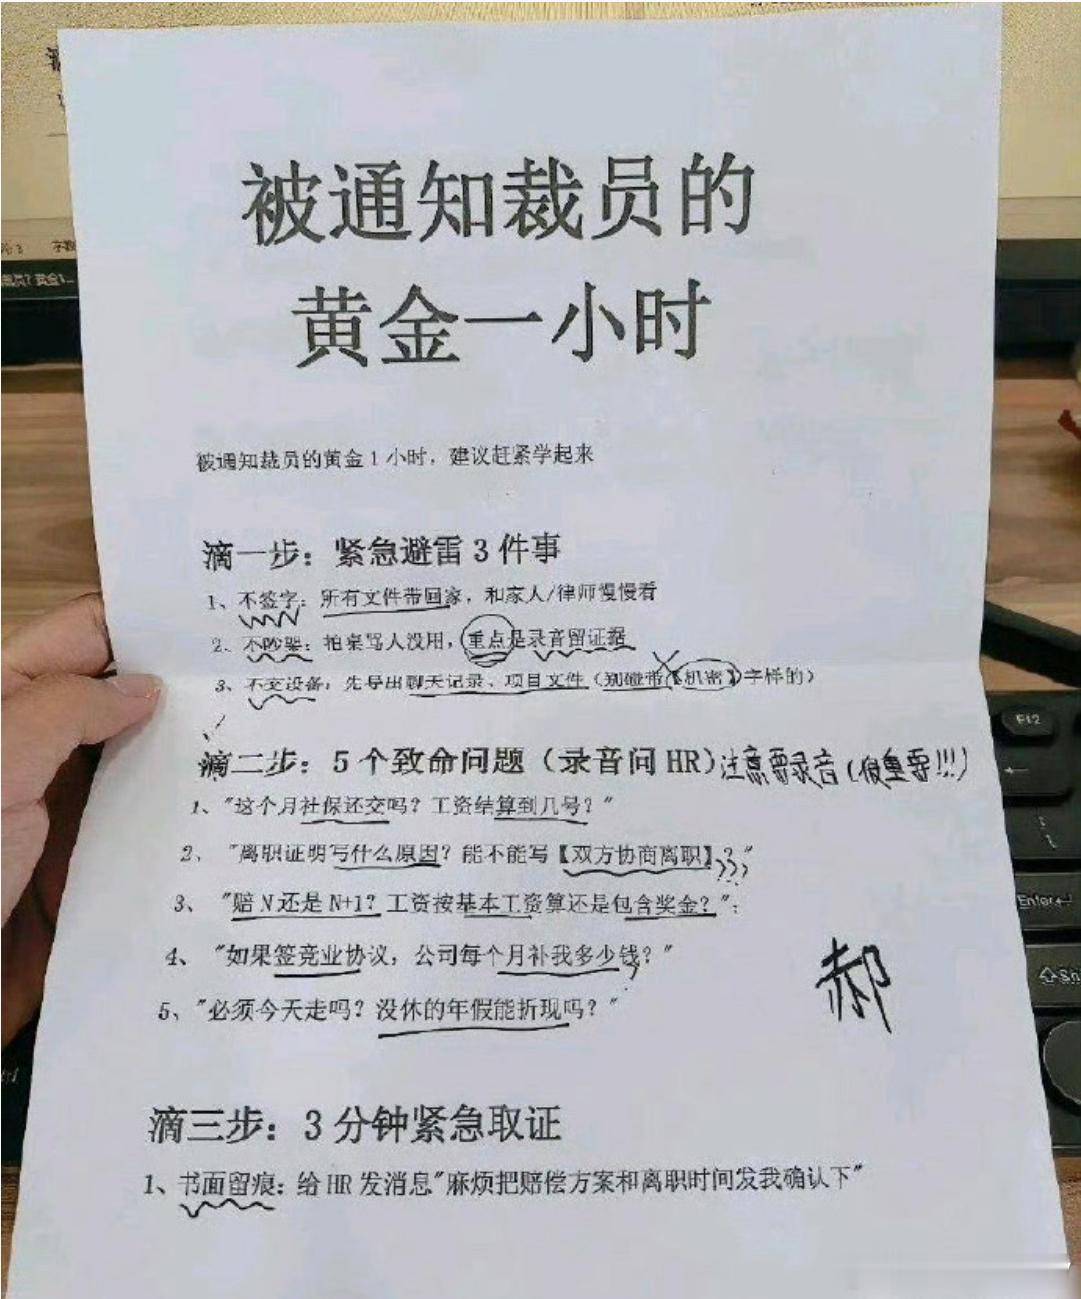 被通知裁员的
黄金一小时
被通知裁员的黄金1小时，建议赶紧学起来
滴一步：紧急避雷3件事
1、不签字：所有文件带回家，和家人/律师慢慢看
2、不吵架：拍桌骂人没用，重点是录音留证据
3、不交设备：先导出聊天记录、项目文件（别碰带【机密】字样的）
滴二步：5个致命问题（录音问HR)注意要录音(很重要!!!)
1、"这个月社保还交吗？工资结算到几号？"
2、"离职证明写什么原因？能不能写【双方协商离职】？"
3、"赔N还是N+1？工资按基本工资算还是包含奖金？"；
4、"如果签竞业协议，公司每个月补我多少钱？"
5、"必须今天走吗？没休的年假能折现吗？"
郝
滴三步：3分钟紧急取证
1、书面留痕：给HR发消息"麻烦把赔偿方案和离职时间发我确认下"
F12
Enter